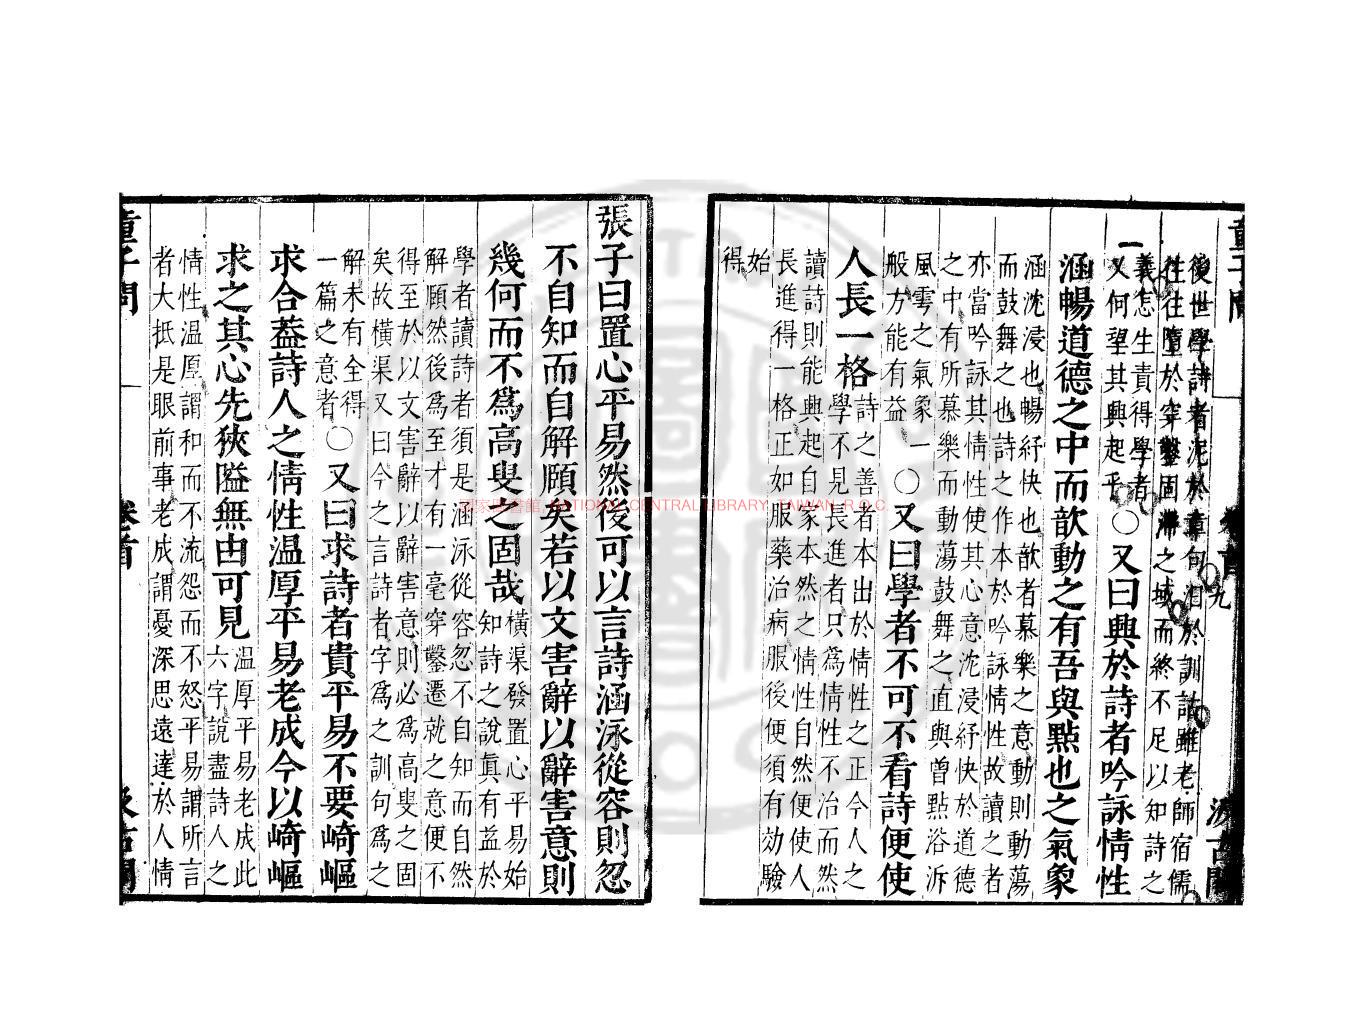 後世學詩者泥於章句汨於訓詁雖老師宿儒
往往墮於穿鑿固滯之域而終不足以知詩之
義怎生責得學者
又何望其興起乎
一
○又曰興於詩者吟詠情性
涵暢道德之中而歆動之有吾與點也之氣象
涵沈浸也暢紓快也歆者慕樂之意動則動蕩
而鼓舞之也詩之作本於吟詠情性故讀之者
亦當吟詠其情性使其心意沈浸紓快於道德
之中有所慕樂而動蕩鼓舞之直與曾點浴沂
風雩之氣象一
般方能有益
○又曰學者不可不看詩便使
人長一格
詩之善者本出於情性之正今人之
學不見長進者只為情性不治而然
讀詩則能興起自家本然之情性自然便使人
長進得一格正如服藥治病服後便須有効驗
始
得
張子曰置心平易然後可以言詩涵泳從容則忽
不自知而自解頤矣若以文害辭以辭害意則
幾何而不爲高叟之固哉
橫渠發置心平易始
知詩之說真有益於
學者讀詩者須是涵泳從容忽不自知而自然
解頤然後為至才有一毫穿鑿遷就之意便不
得至於以文害辭以辭害意則必為高叟之固
矣故橫渠又曰今之言詩者字為之訓句為之
解未有全得
一篇之意者
○又曰求詩者貴平易不要崎嶇
求合葢詩人之情性温厚平易老成今以崎嶇
求之其心先狹隘無由可見
温厚平易老成此
六字說盡詩人之
情性温厚謂和而不流怨而不怒平易謂所言
者大抵是眼前事老成謂憂深思遠達於人情
童子問
卷首
九
汲古閣
童子問
卷首
汲古閣
國家圖書館 NATIONAL CENTRAL LIBRARY, TAIWAN, R.O.C.